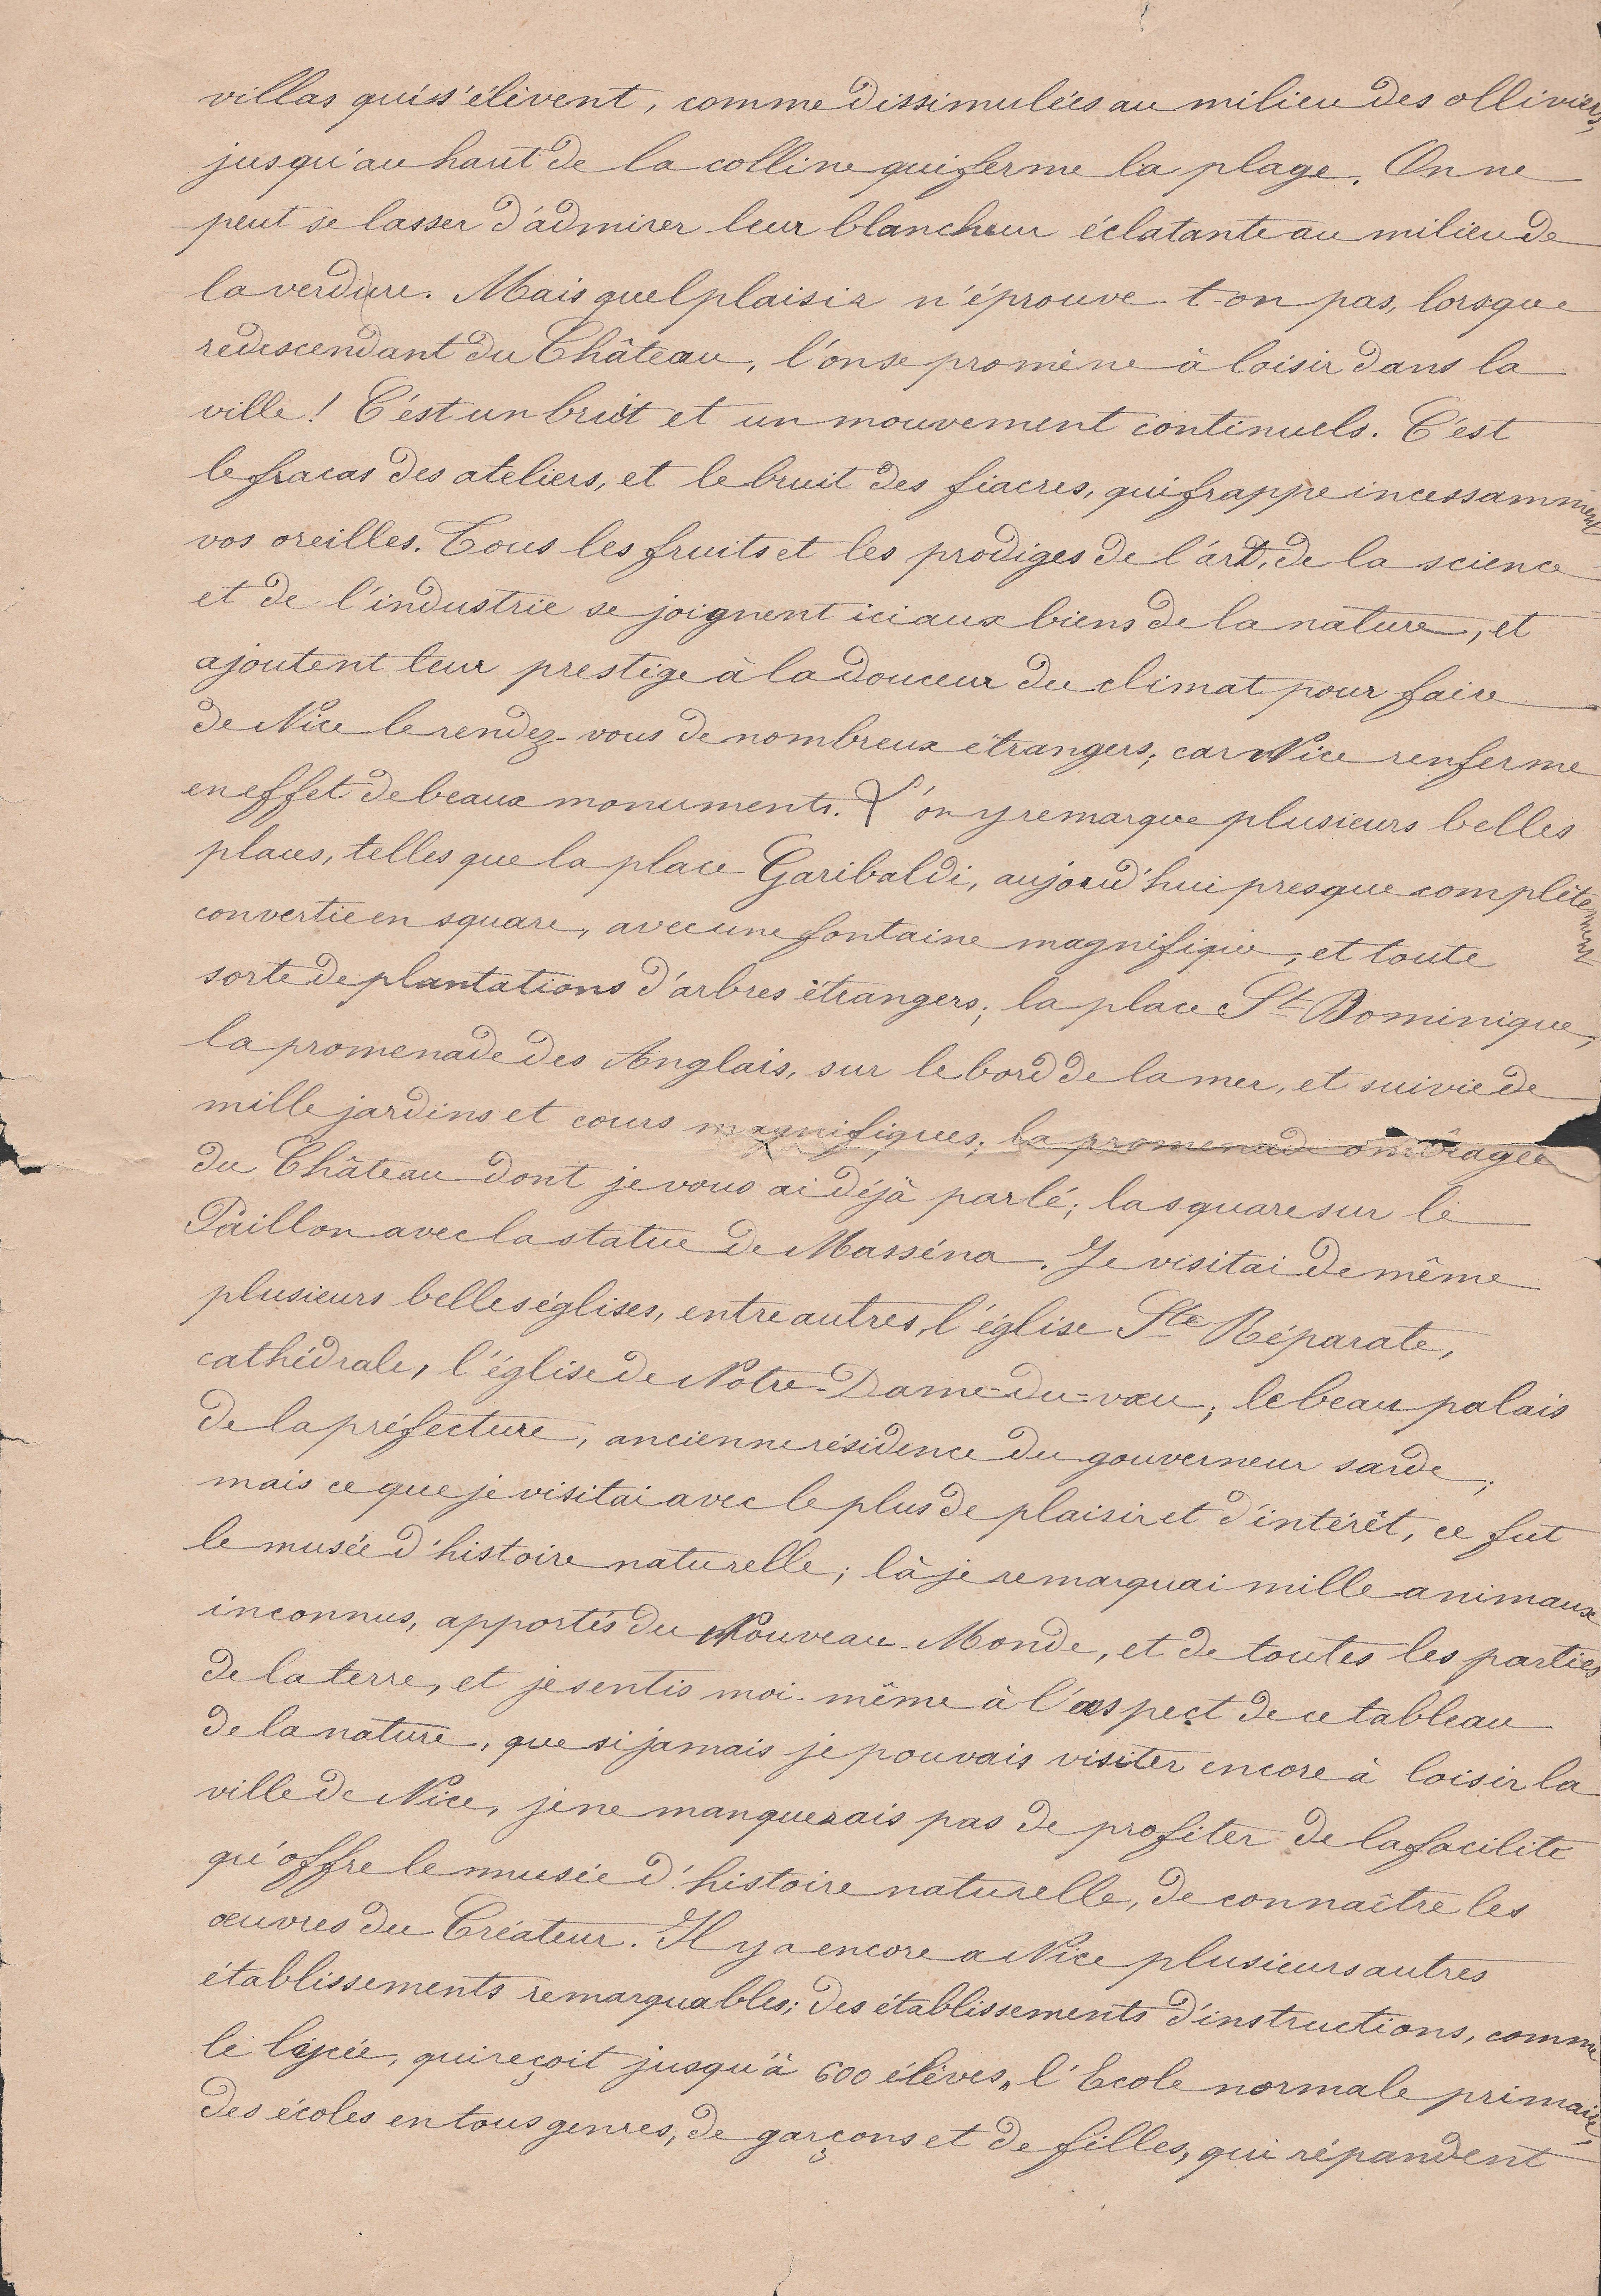 villas qui s'élèvent, comme dissimulées au milieu des olliviers,
jusqu'au haut de la colline qui ferme la plage. On ne
peut se lasser d'admirer leur blancheur éclatante au milieu de
la verdure. Mais quel plaisir n'éprouve-t-on pas, lorsque
redescendant du Château, l'on se promène à loisir dans la
ville! C'est un bruit et un mouvement continuels. C'est
le fracas des ateliers, et le bruit des fiacres, qui frappe incessamment
vos oreilles. Tous les fruits et les prodiges de l'art, de la science
et de l'industrie se joignent ici aux biens de la nature, et
ajoutent leur prestige à la douceur du climat pour faire
de Nice le rendez-vous de nombreux étrangers; car Nice renferme
en effet de beaux monuments. L'on y remarque plusieurs belles
places, telles que la place Garibaldi, aujourd'hui presque complètement
convertie en square, avec une fontaine magnifique, et toute
sorte de plantations d'arbres étrangers; la place St Dominique,
la promenade des Anglais, sur le bord de la mer, et suivie de
mille jardins et cours magnifiques; la promenade ombragée
du Château dont je vous ai déjà parlé; la square sur le
Paillon avec la statue de Masséna. Je visitai de même
plusieurs belles églises, entre autres, l'église Ste Réparate,
cathédrale, l'église de Notre-Dame-du-vœu; le beau palais
de la préfecture, ancienne résidence du gouverneur sarde;
mais ce que je visitai avec le plus de plaisir et d'intérêt, ce fut
le musée d'histoire naturelle; là je remarquai mille animaux
inconnus, apportés du Nouveau-Monde, et de toutes les parties
de la terre, et je sentis moi-même à l'aspect de ce tableau
de la nature, que si jamais je pouvais visiter encore à loisir la
ville de Nice, je ne manquerais pas de profiter de la facilité
qu'offre le musée d'histoire naturelle, de connaître les
œuvres du Créateur. Il y a encore a Nice plusieurs autres
établissements remarquables; des établissements d'instructions, comme
le lycée, qui reçoit jusqu'à 600 élèves, l'Ecole normale primaire,
des écoles en tous genres, de garçons et de filles, qui répandent